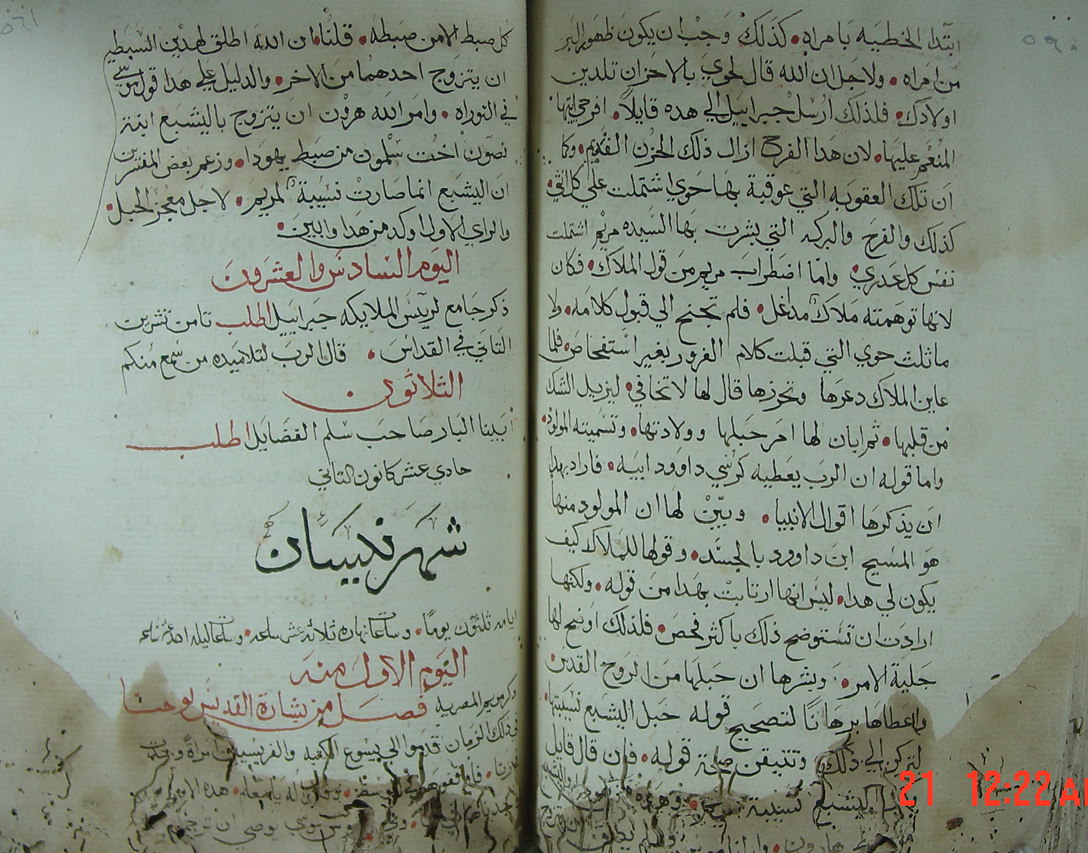 ابتدا الخطيه بامراه كذلك وجب ان يكون ظهور البر
من امراه ولاجل ان الله قال لحوي بالاحزان تلدين
اولادك فلذلك ارسل جبراييل الي هده قايلاً افرحي ايتها
المنعم عليها لان هدا الفرح ازال ذلك الحزن القديم وكا
ان تلك العقوبه التي عوقبة بها حوي اشتملت علي كل انثي
كذلك والفرح والبركه التي بشرت بها السيده مريم اشتملت
نفس كل عدري واما اضطراب مريم من قول الملاك فكان
لانها توهمته ملاك مدغل فلم تجنح الي قبول كلامه ولا
ماثلث حوي التي قبلت كلام الغرور بغير استفحاص فلما
عاين الملاك دعرها وتحرزها قال لها لا تخافي ليزيل الشك
من قلبها ثم ابان لها امر حبلها وولادتها وتسميته المولود
واما قوله ان الرب يعطيه كرسي داوود ابيه فاراد بهدا
ان يذكرها اقوال الانبيا وبين لها ان المولود منها
هو المسيح ابن داوود بالجسد وقولها للملاك كيف
يكون لي هدا ليس انها ارتابت بهدا من قوله ولكنها
ارادت ان تستوضح ذلك باكثر فحص فلذلك اوضح لها
جلية الامر وبشرها ان حبلها من الروح القدس
واعطاها برهانا لتصحيح قوله حبل اليشبع نسيبتها
لتركن الي ذلك وتتيقن صحة قوله فان قال قايل
اليشبع نسيبة
كل صبط الا من صبطه قلنا ان الله اطلق لهدين السبطين
ان يتزوج احدهما من الاخر والدليل علي هدا قول موسي
في التوراه وامر الله هرون ان يتزوج باليشبع ابنة
نصون اخت سلمون من صبط يهودا وزعم بعض المفسرين
ان اليشبع انما صارت نسيبة لمريم لاجل معجز الحبل
والراي الاول اوكد من هدا وابين
اليوم السادس والعشرون
ذكر جامع لرييس الملايكه جبراييل اطلب تامن تشرين
التاني في القداس قال الرب لتلاميده من سمع منكم
الثلاثون
ابينا البار صاحب سلم الفضايل اطلب
حادي عشر كانون التاني
شهر نيسان
ايامه ثلثون يوماً وساعات نهاره ثلاثة عشر ساعه وساعات ليله احد عشر ساعه
اليوم الاول منه
ذكر مريم المصريه فصل من بشارة القديس لوحنا
في ذلك الزمان قدموا الي يسوع الكتبه والفريسيين امراة